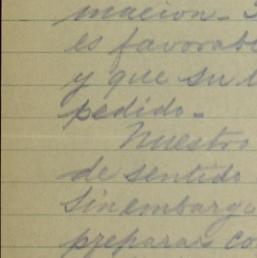 macion.
es favorab
y que su
pedido.
Nuestro
de sentido
Sin embargo
preparar co